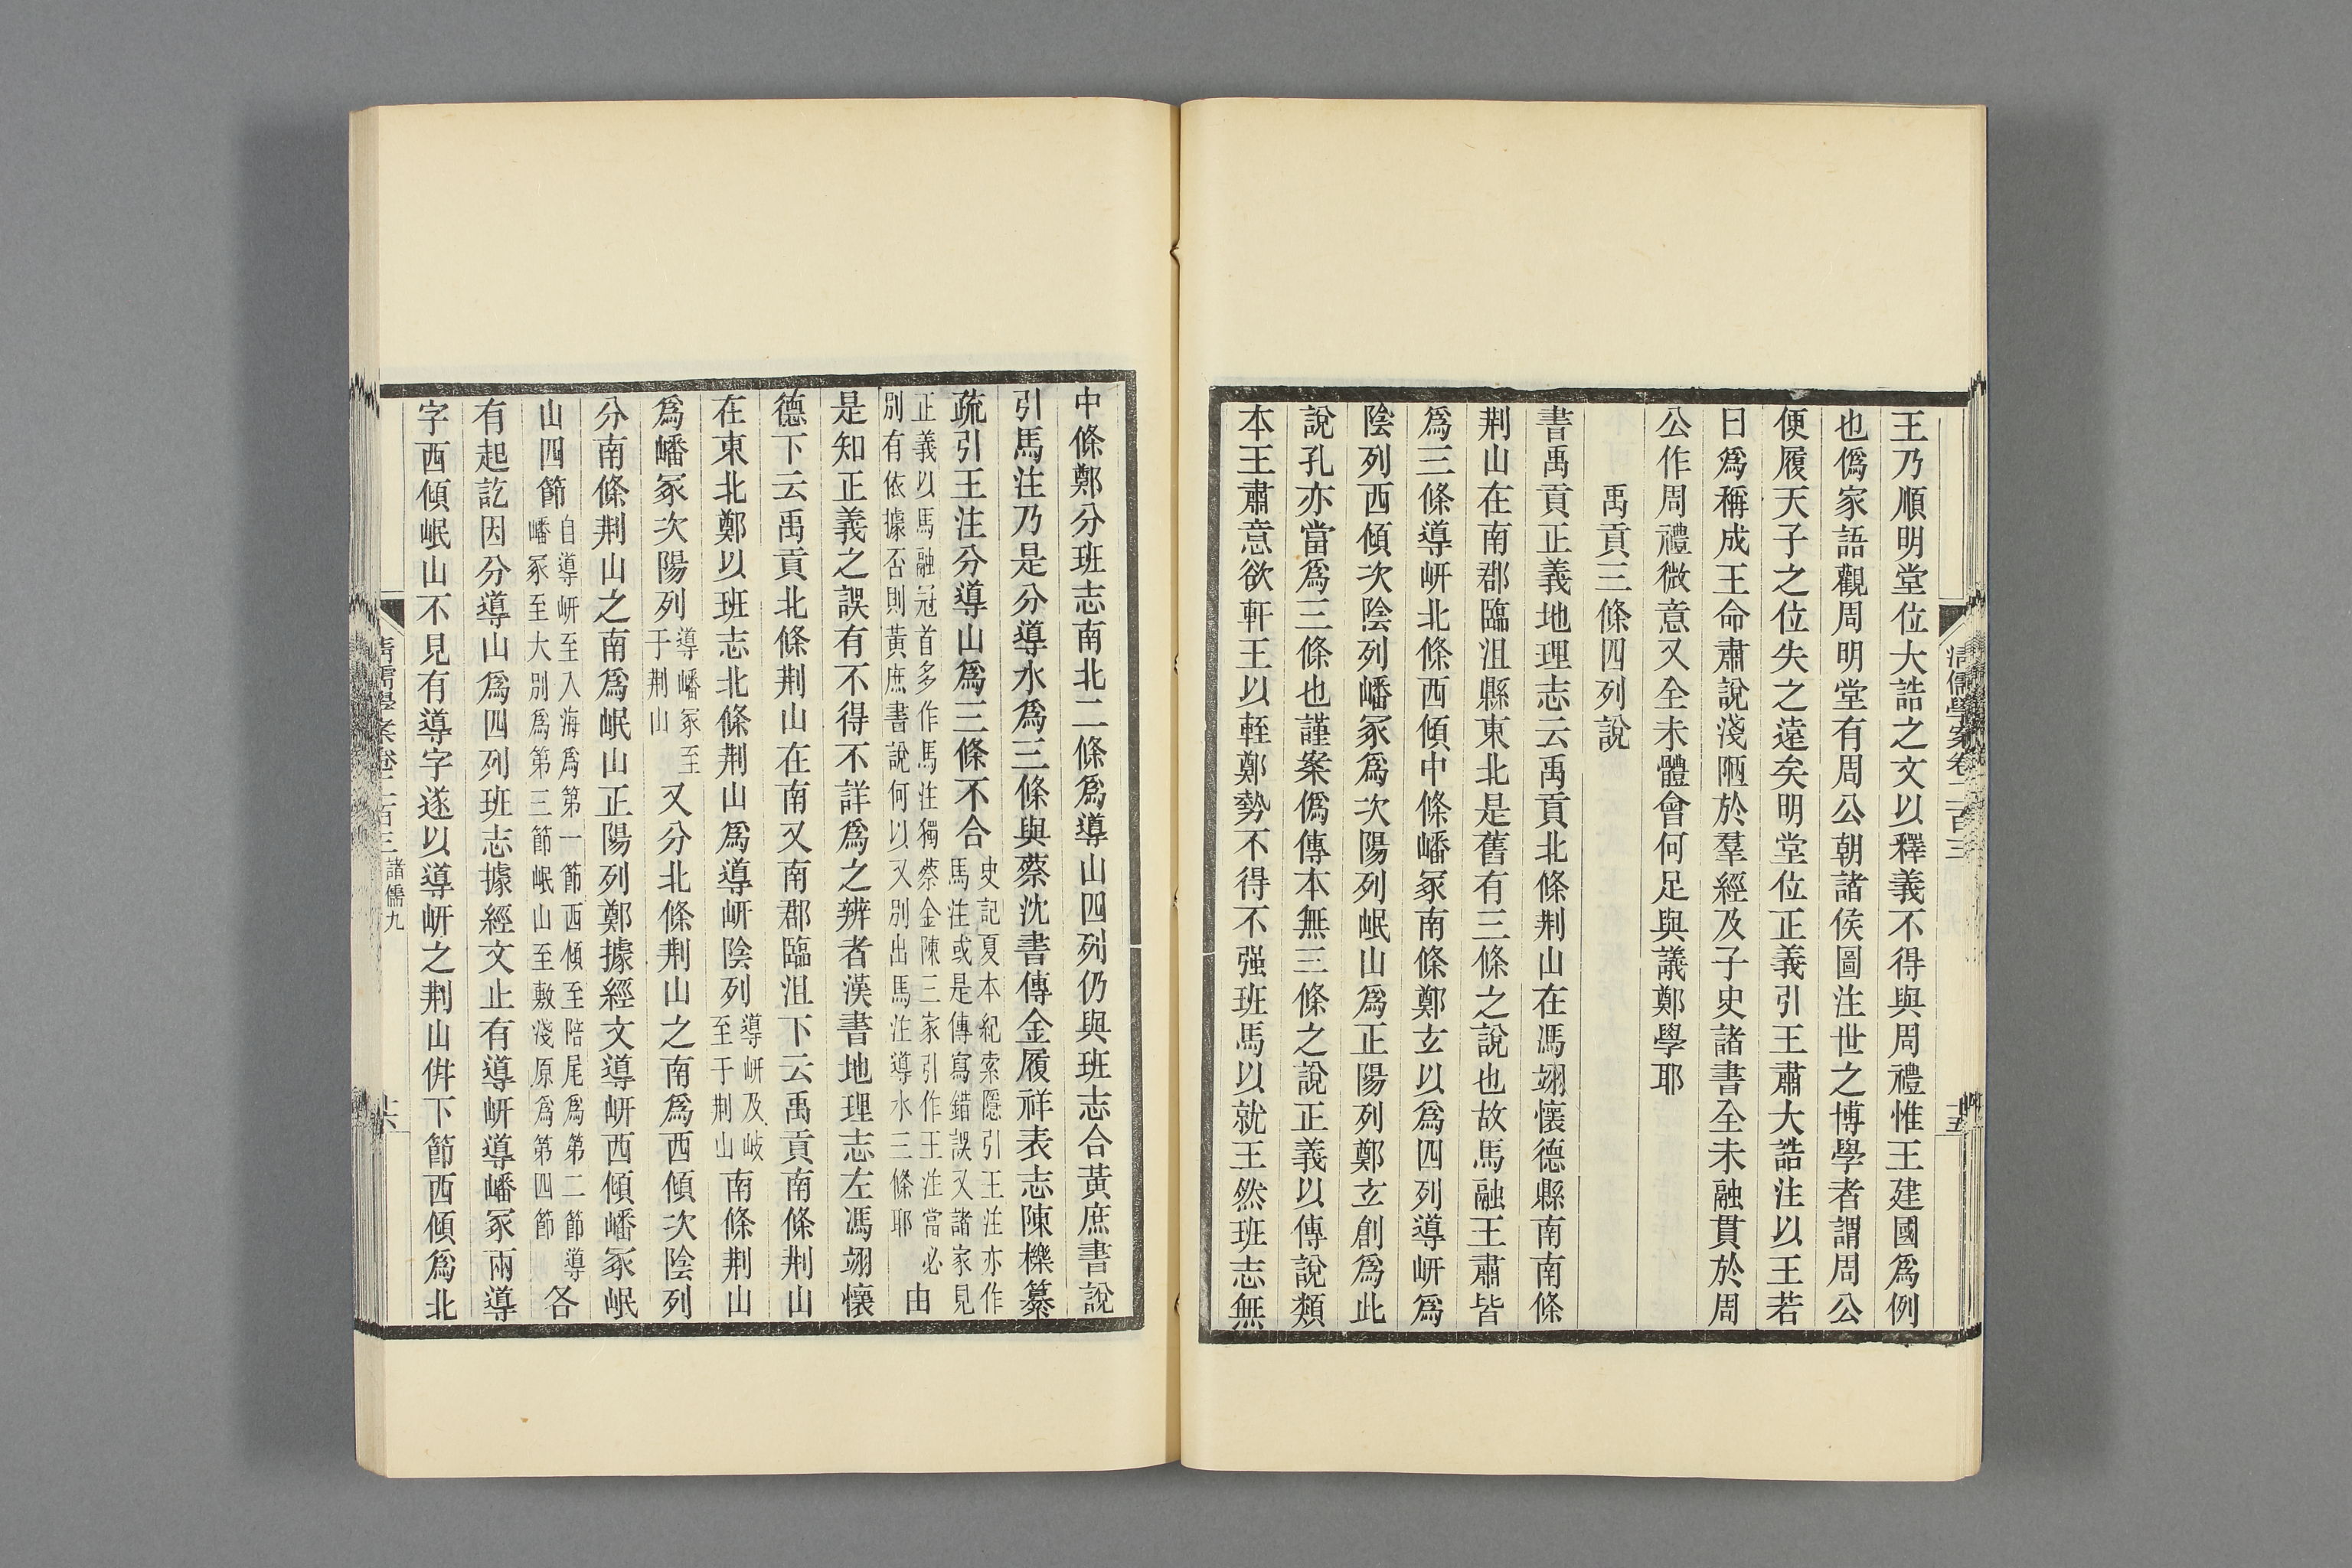 王乃順明堂位大誥之文以釋義不得與周禮惟王建國爲例
也僞家語觀周明堂有周公朝諸侯圖注世之博學者謂周公
便履天子之位失之遠矣明堂位正義引王肅大誥注以王若
曰爲稱成王命肅說淺陋於羣經及子史諸書全未融貫於周
公作周禮微意又全未體會何足與議鄭學耶
禹貢三條四列說
書禹貢正義地理志云禹貢北條荆山在馮翊懷德縣南南條
荆山在南郡臨沮縣東北是舊有三條之說也故馬融王肅皆
爲三條導岍北條西傾中條嶓冢南條鄭玄以爲四列導岍爲
陰列西傾次陰列嶓冢爲次陽列岷山爲正陽列鄭玄創爲此
說孔亦當爲三條也謹案僞傳本無三條之說正義以傳說類
本王肅意欲軒王以輊鄭勢不得不强班馬以就王然班志無
清儒學案卷二百三
十五
中條鄭分班志南北二條爲導山四列仍與班志合黃庶書說
引馬注乃是分導水爲三條與蔡沈書傳金履祥表志陳櫟纂
疏引王注分導山爲三條不合
史記夏本紀索隱引王注亦作
馬注或是傳寫錯誤又諸家見
正義以馬融冠首多作馬注獨蔡金陳三家引作王注當必
別有依據否則黃庶書說何以又別出馬注導水三條耶
由
是知正義之誤有不得不詳爲之辨者漢書地理志左馮翊懷
德下云禹貢北條荆山在南又南郡臨沮下云禹貢南條荆山
在東北鄭以班志北條荆山爲導岍陰列
導岍及岐
至于荆山
南條荆山
爲嶓冢次陽列
導嶓冢至
于荆山
又分北條荆山之南爲西傾次陰列
分南條荆山之南爲岷山正陽列鄭據經文導岍西傾嶓冢岷
山四節
自導岍至入海爲第一節西傾至陪尾爲第二節導
嶓冢至大別爲第三節岷山至敷淺原爲第四節
各
有起訖因分導山爲四列班志據經文止有導岍導嶓冢兩導
字西傾岷山不見有導字遂以導岍之荆山併下節西傾爲北
清儒學案卷二百三
諸儒九
十六